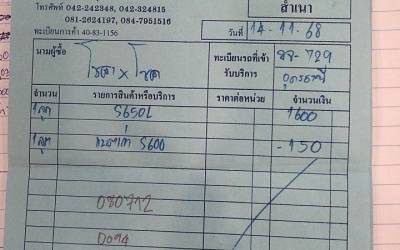 โทรศัพท์ 042-242348, 042-324815
081-2624197, 084-7951516
ทะเบียนการค้า 40-83-1156
สำเนา
วันที่ 14-11-68
นามผู้ซื้อ
ทะเบียนรถที่เข้ารับบริการ 88-729 อุดรธานี
จำนวน รายการสินค้าหรือบริการ ราคาต่อหน่วย จำนวนเงิน
1 ลูก S650L 1600
1 ลูก S600 -150
080712